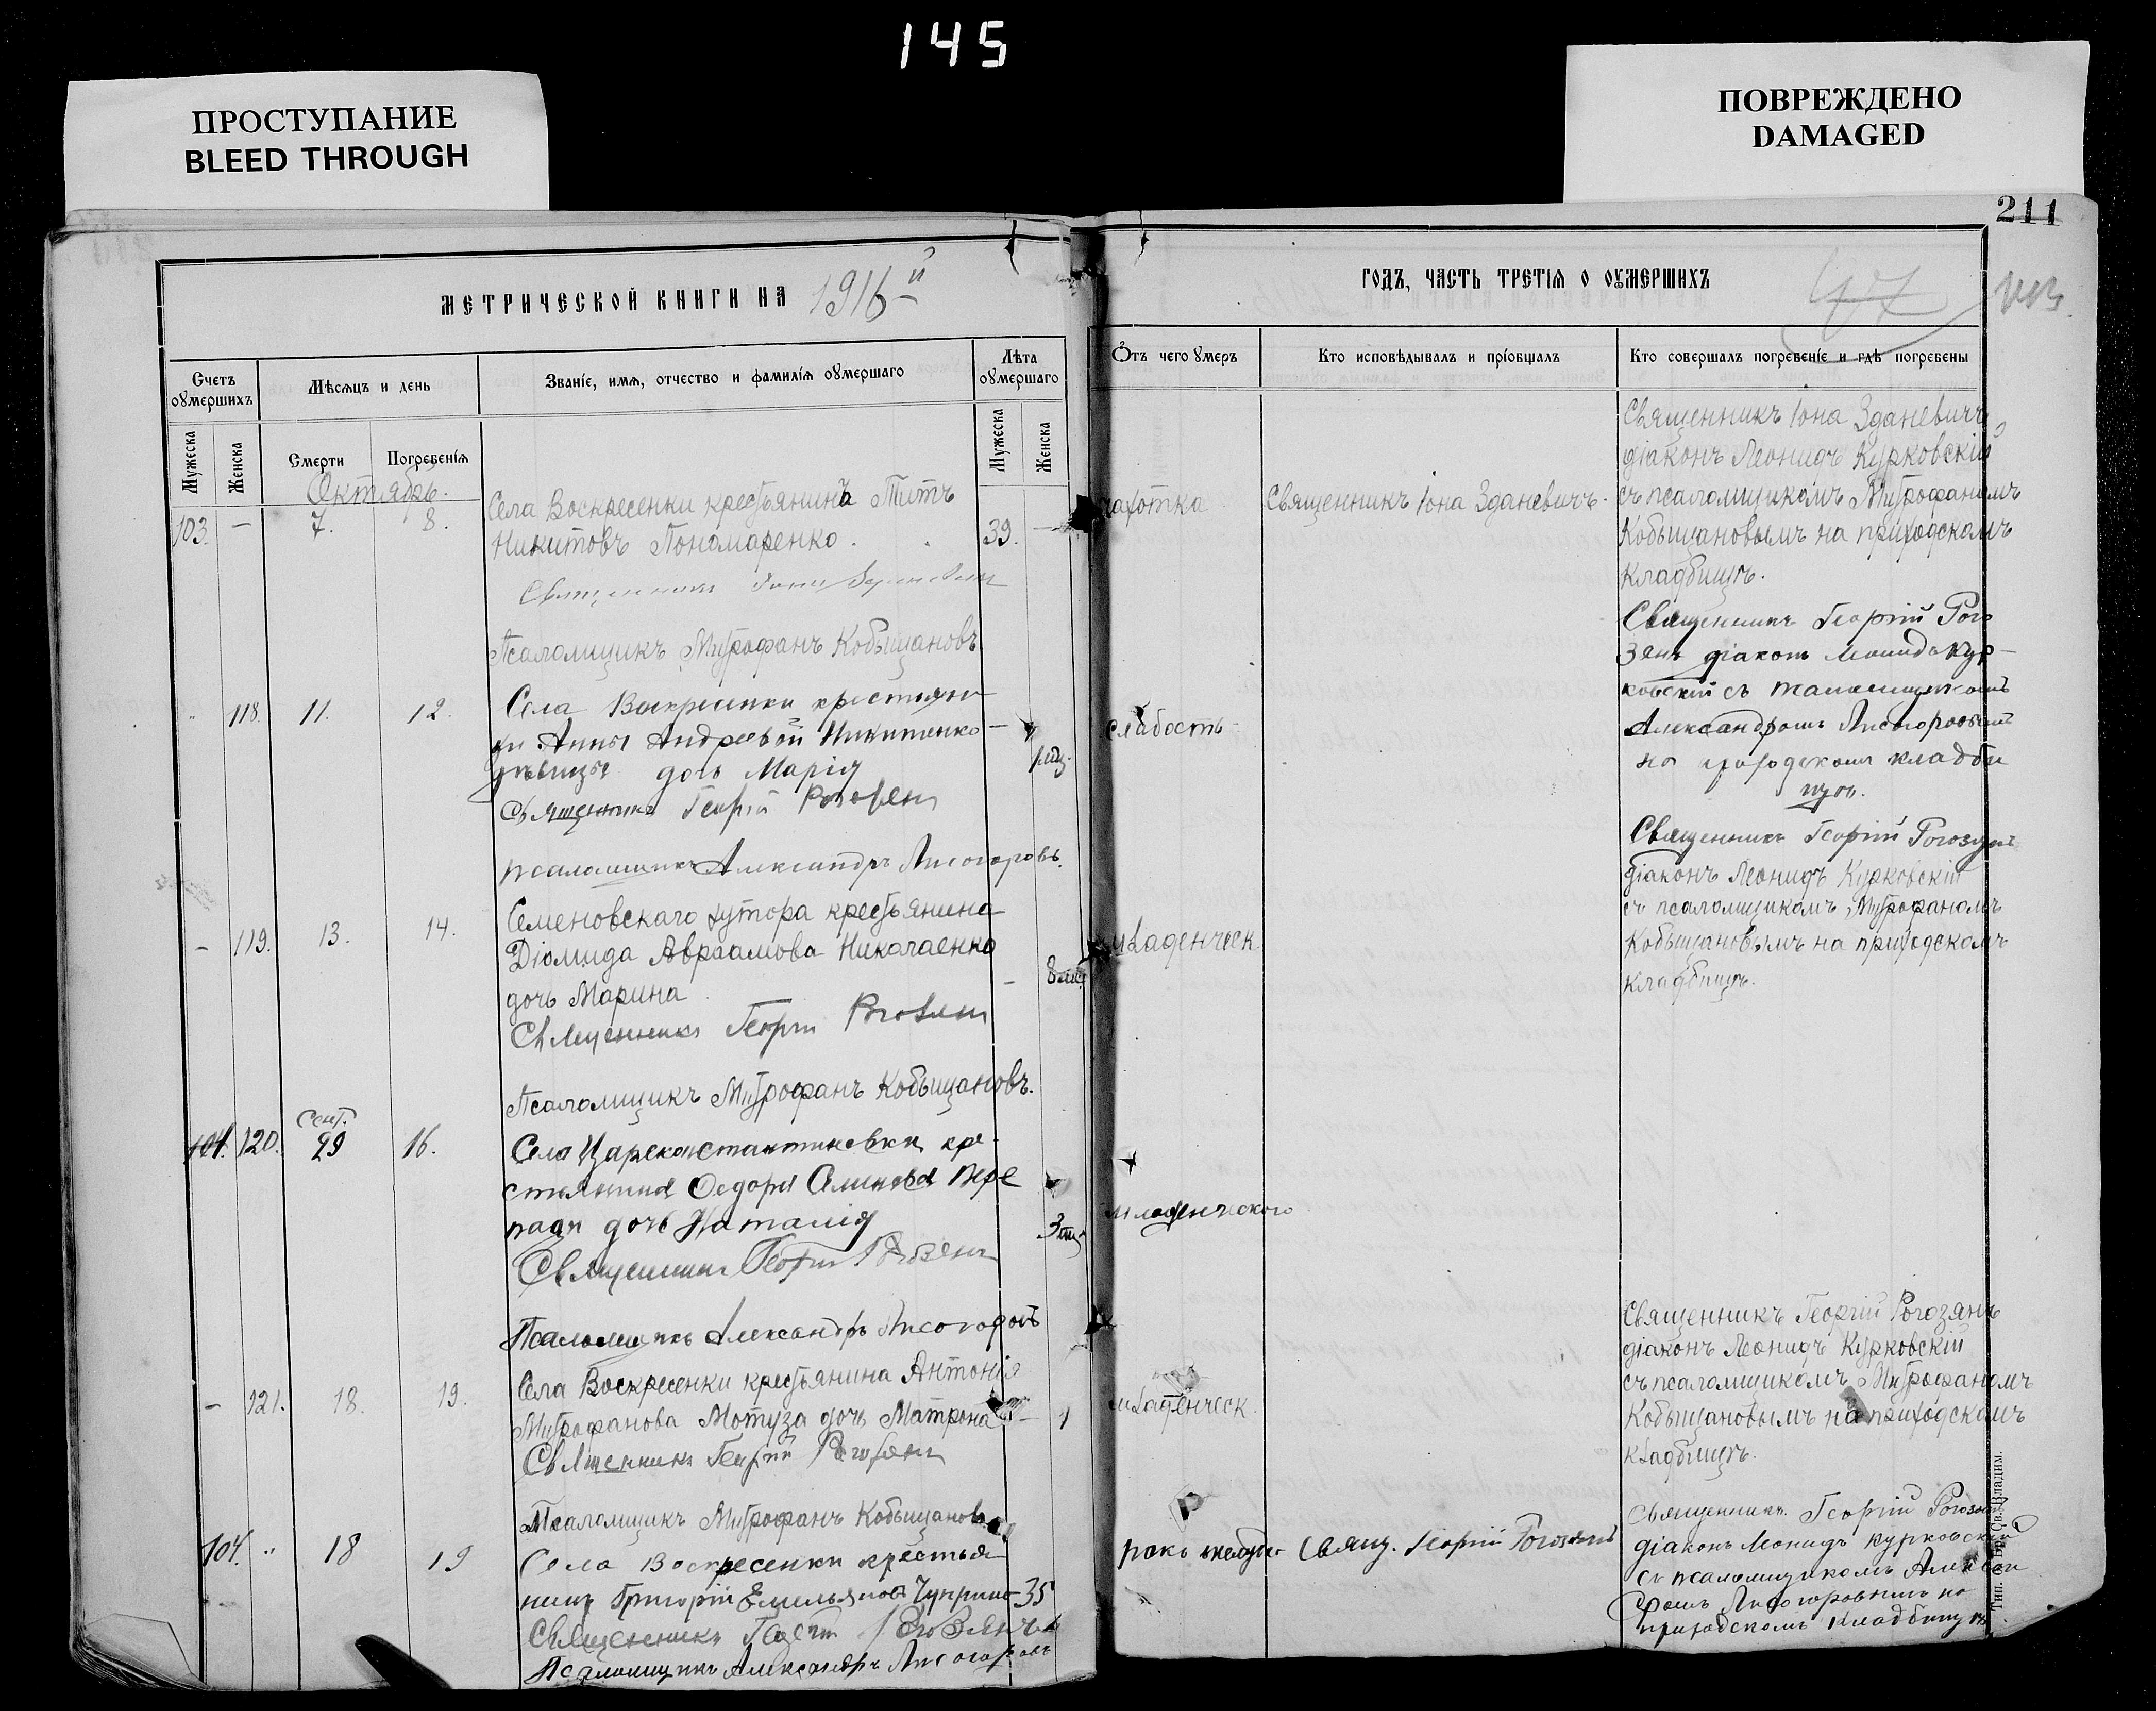 145
ПРОСТУПАНИЕ
BLEED THROUGH
ПОВРЕЖДЕНО
DAMAGED
211
МЕТРИЧЕСКОЙ КНИГИ НА 1916-й
Счетъ оумершихъ
Мѣсяцъ и день
Званіе, имя, отчество и фамилія оумершаго
Лѣта оумершаго
Мужеска
Женска
Смерти
Погребенія
Мужеска
Женска
Октябрь.
103. — 7. 8.
Села Воскресенки крестьянинъ Титъ
Никитовъ Пономаренко. 39. —
Священникъ Іона Зданевичъ
Псаломщикъ Митрофанъ Кобыщановъ
" 118. 11. 12.
Села Воскресенки крестьян
ки Анны Андреевой Никитенко —
дѣвицы дочь Марія
Священникъ Георгій Рогозянъ
псаломщикъ Александръ Лисогоровъ.
— 119. 13. 14.
Семеновскаго хутора крестьянина
Діомида Авраамова Николаенко
дочь Марина — 8 мѣс.
Священникъ Георгій Рогозянъ
Псаломщикъ Митрофанъ Кобыщановъ.
Сент.
104. 120. 29 16.
Села Царекостантиновки кре-
стьянина Федора
дочь Наталія
Священникъ Георгій Рогозянъ
Псаломщикъ Александръ Лисогоровъ
— 121. 18. 19.
Села Воскресенки крестьянина Антонія
Митрофанова Мотуза дочь Матрона — 1
Священникъ Георгій Рогозянъ
Псаломщикъ Митрофанъ Кобыщановъ
104. " 18 19
Села Воскресенки крестья
нинъ Григорій Емельяновъ Чуприна 35
Священникъ Георгій Рогозянъ
Псаломщикъ Александръ Лисогоровъ
ГОДЪ, ЧАСТЬ ТРЕТІЯ О ОУМЕРШИХЪ
47
Отъ чего умеръ
Кто исповѣдывалъ и пріобщалъ
Кто совершалъ погребеніе и гдѣ погребены
чахотка
Священникъ Іона Зданевичъ.
Священникъ Іона Зданевичъ,
діаконъ Леонидъ Курковскій
съ псаломщикомъ Митрофаномъ
Кобыщановымъ на приходскомъ
кладбищѣ.
слабость
Священникъ Георгій Рого
зянъ діаконъ Леонидъ Кур-
ковскій съ псаломщикомъ
Александромъ Лисогоровымъ
на приходскомъ кладби
щѣ.
младенческ.
Священникъ Георгій Рогозянъ
діаконъ Леонидъ Курковскій
съ псаломщикомъ Митрофаномъ
Кобыщановымъ на приходскомъ
кладбищѣ.
младенческого
младенческ.
Священникъ Георгій Рогозянъ
діаконъ Леонидъ Курковскій
съ псаломщикомъ Митрофаномъ
Кобыщановымъ на приходскомъ
кладбищѣ.
ракъ желудка
Свящ. Георгій Рогозянъ
Священникъ Георгій Рогозянъ
діаконъ Леонидъ Курковскій
съ псаломщикомъ Алексан
дромъ Лисогоровымъ на
приходскомъ кладбищѣ
Тип. Бр. Св. Владим.